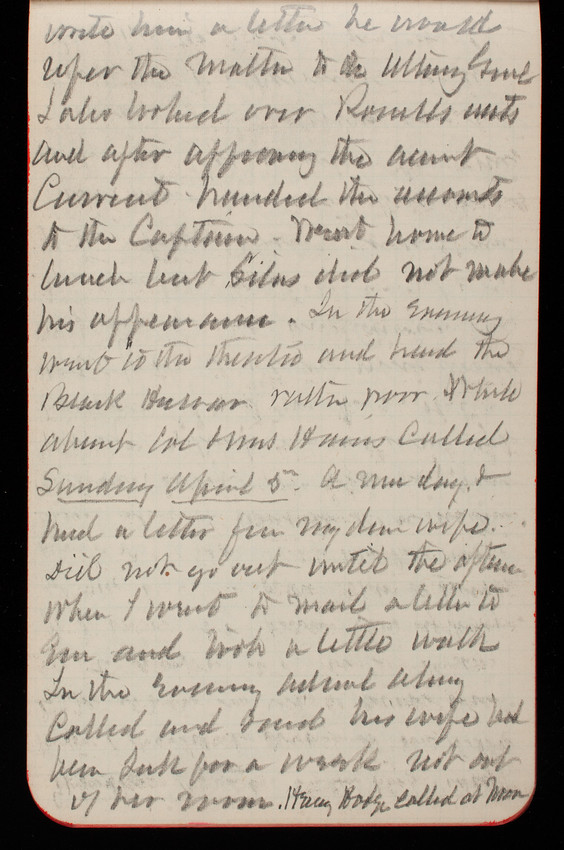 wrote him a letter he would
refer the matter to the Attorney Genl
I also looked over Romills accts
and after approving the account
Current handed the accounts
to the Captain. Went home to
lunch but Silas did not make
his appearance. In the Evening
went to the theatre and heard the
Black Hussar rather poor While
absent Col & Mrs Harris Called
Sunday April 5th. A nice day &
had a letter from my dear wife.
Did not go out until the aftern
when I went to mail a letter to
Em and took a little walk
In the Evening
Called and said his wife had
been sick for a week not out
of her room. Henry Hodge called at Noon